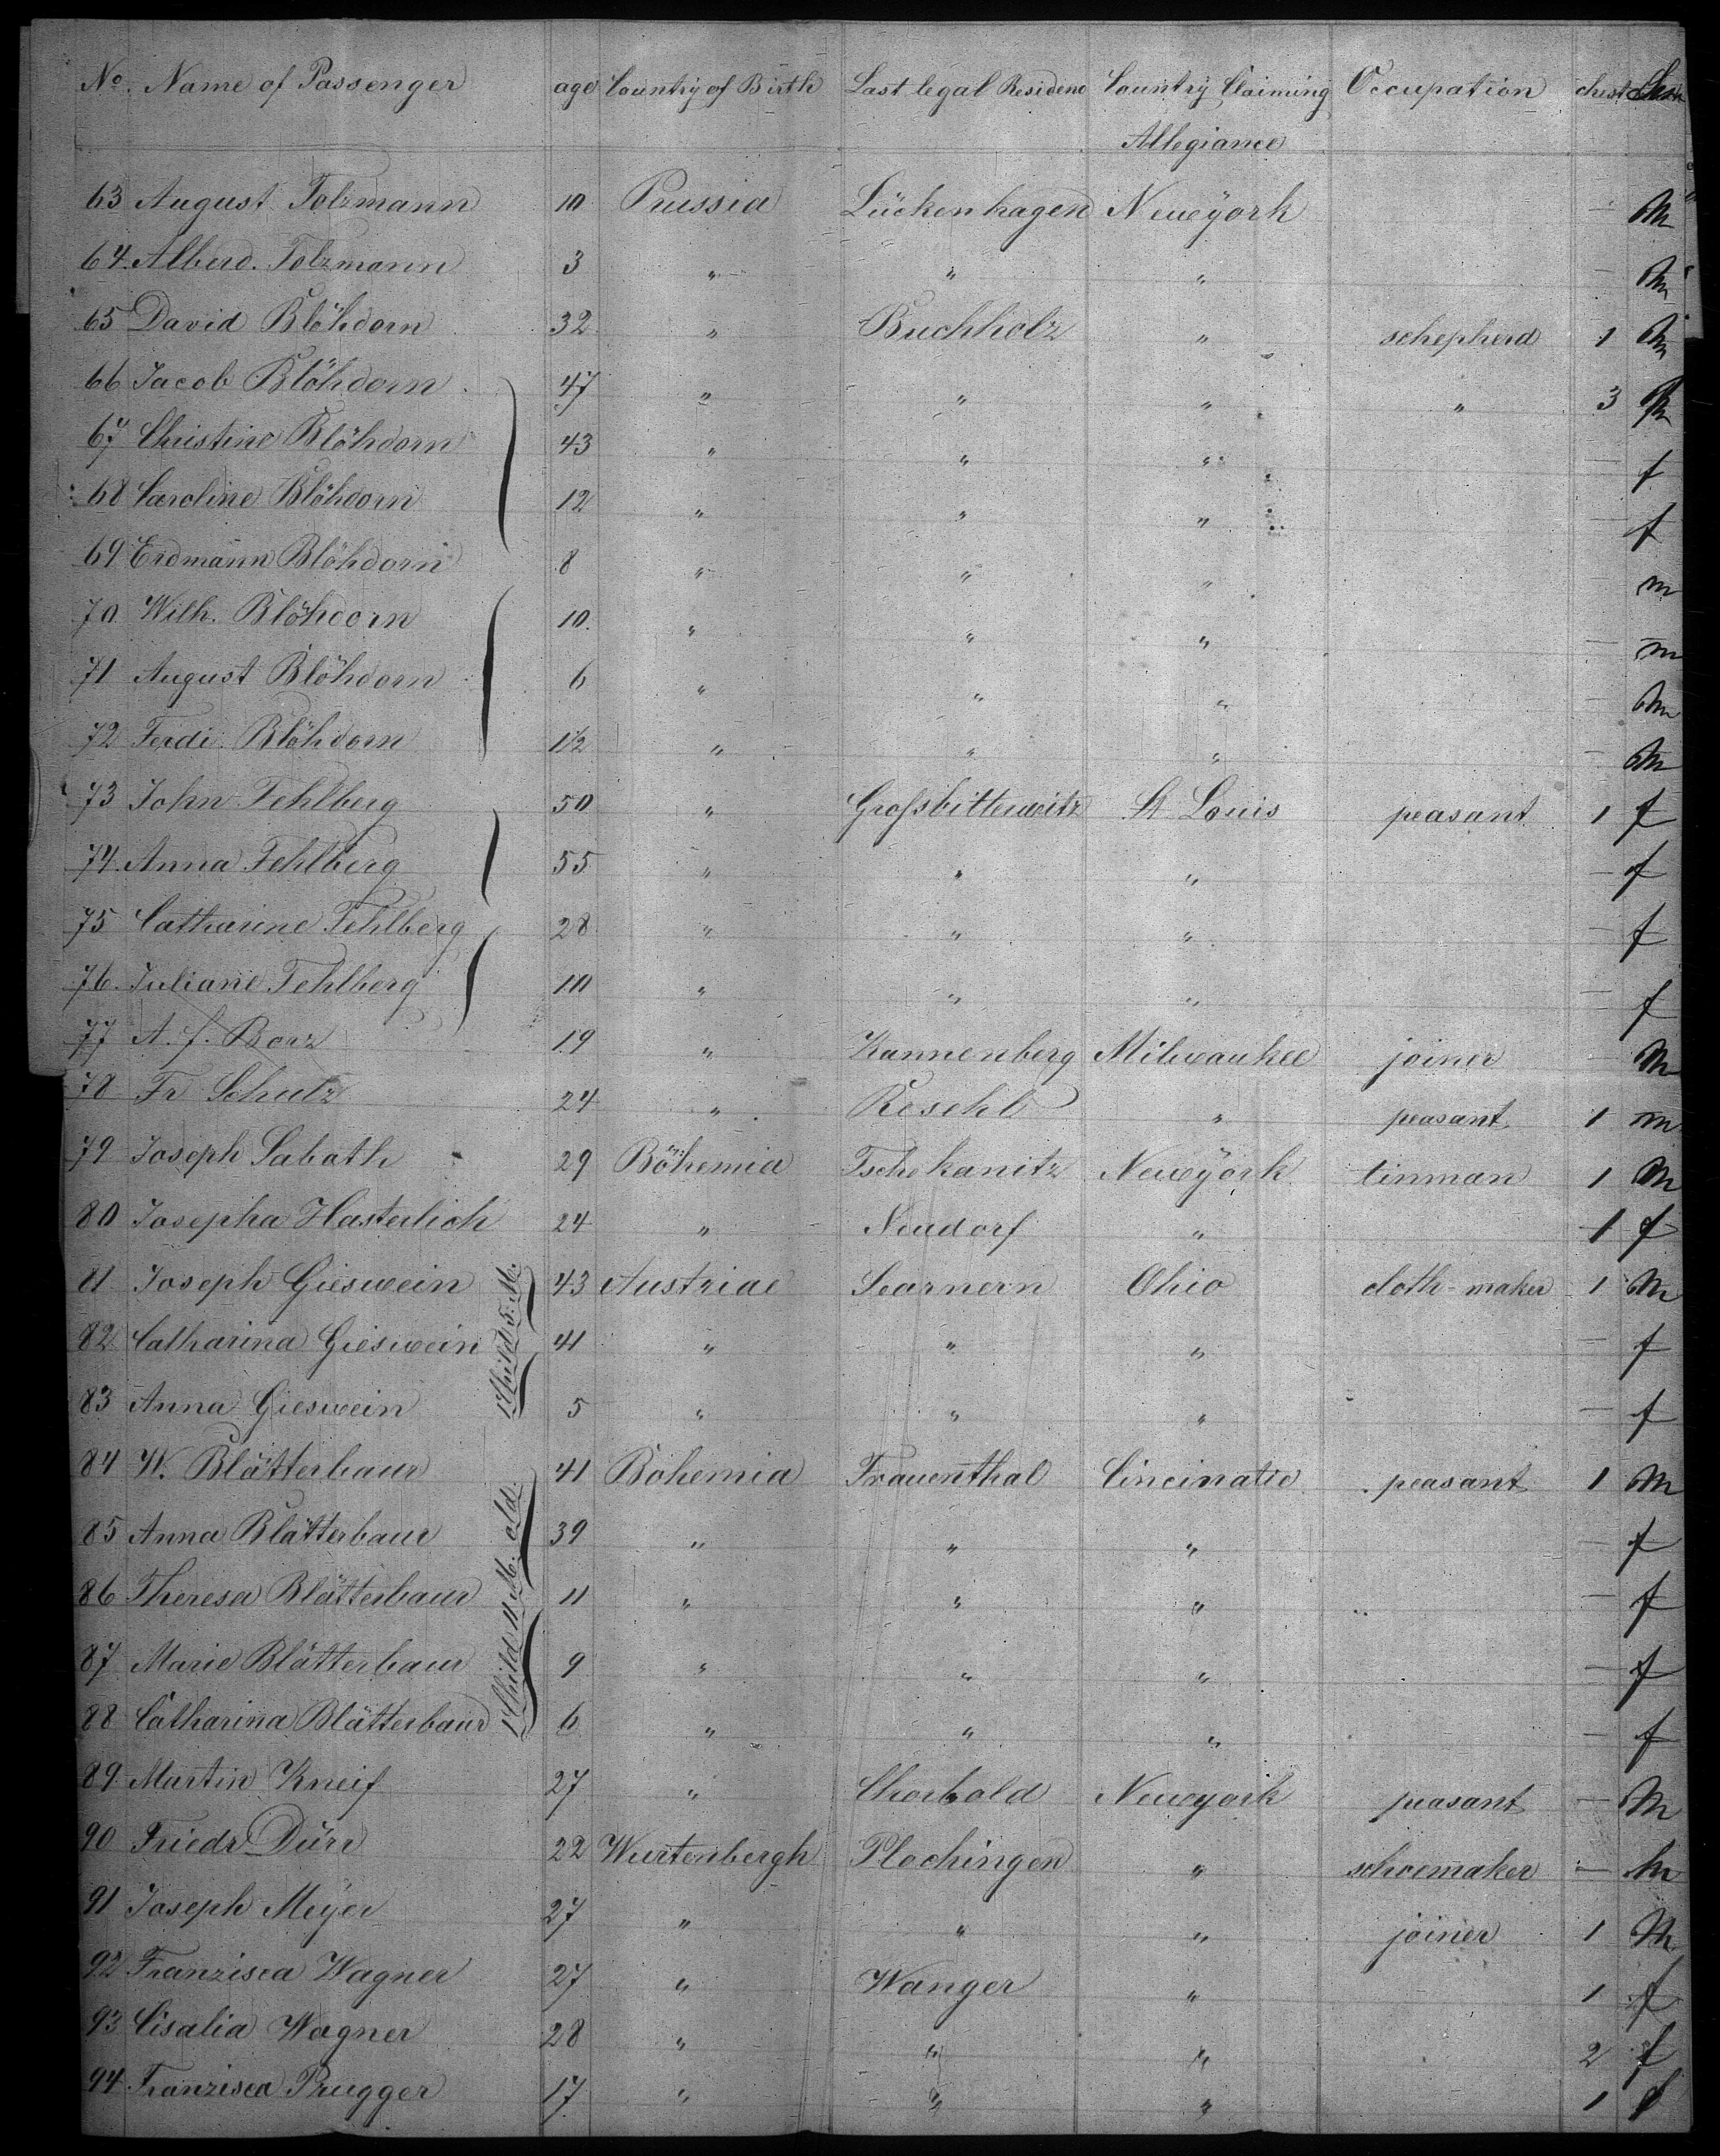 No. Name of Passenger age Country of Birth Last legal Residenc Country Claiming Occupation chest
Allegiance
63 August Tolzmann 10 Prussia Lückenhagen Neuyork — m
64. Alberd. Tolzmann 3 " " " — m
65 David Blöhdorn 32 " Buchholz " schepherd 1 m
66 Jacob Blöhdorn 47 " " " " 3 m
67 Christine Blöhdorn 43 " " " — f
68 Caroline Blöhdorn 12 " " " — f
69 Erdmann Blöhdorn 8 " " " m
70 Wilh. Blöhdorn 10 " " " — m
71 August Blöhdorn 6 " " " — m
72 Ferdi. Blöhdorn 1½ " " " — m
73 John Fehlberg 50 " Grossbitterwitz St Louis peasant 1 f
74. Anna Fehlberg 55 " " " — f
75 Catharine Fehlberg 28 " " " — f
76. Juliane Fehlberg 10 " " " — f
77 A. f. Borz 19 " Kannenberg Milwaukee joiner — m
78 Fr Schulz 24 " Resehl " peasant 1 m
79 Joseph Sabath 29 Böhemia Tschekanitz Neuyork tinman 1 m
80 Josepha Hasterlich 24 " Neudorf " 1 f
81 Joseph Gieswein 43 Austriae Searnern Ohio cloth-maker 1 m
82 Catharina Gieswein 41 " " " — f
83 Anna Gieswein 5 " " " — f
1 Child 5. M.
84 W. Blätterbaur 41 Bohemia Frauenthal Cincinatie peasant 1 m
85 Anna Blätterbaur 39 " " " — f
86 Theresa Blätterbaur 11 " " " — f
87 Marie Blätterbaur 9 " " " — f
88 Catharina Blätterbaur 6 " " " — f
1 Child 11 M. old.
89 Martin Kneif 27 " Chorbold Neuyork peasant — m
90 Friedr Dürr 22 Wurtenbergh Plochingen " schoemaker — m
91 Joseph Meÿer 27 " " " joiner 1 m
92 Franzisca Wagner 27 " Wanger " 1 f
93 Cisalia Wagner 28 " " " 2 f
94. Franzisca Prugger 17 " " " 1 f